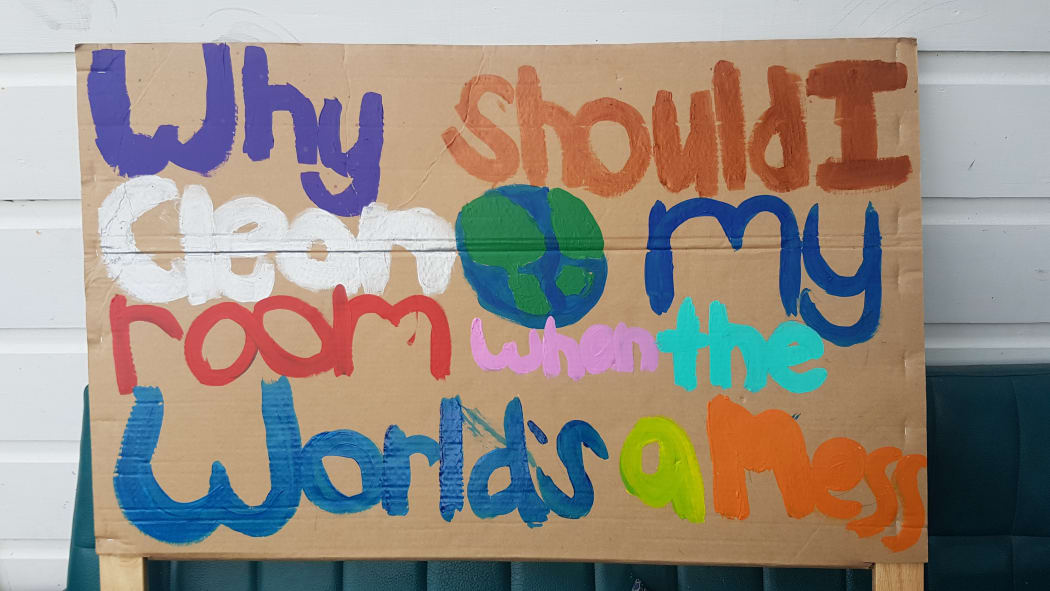 Why should I
Clean my
room when the
World's a Mess